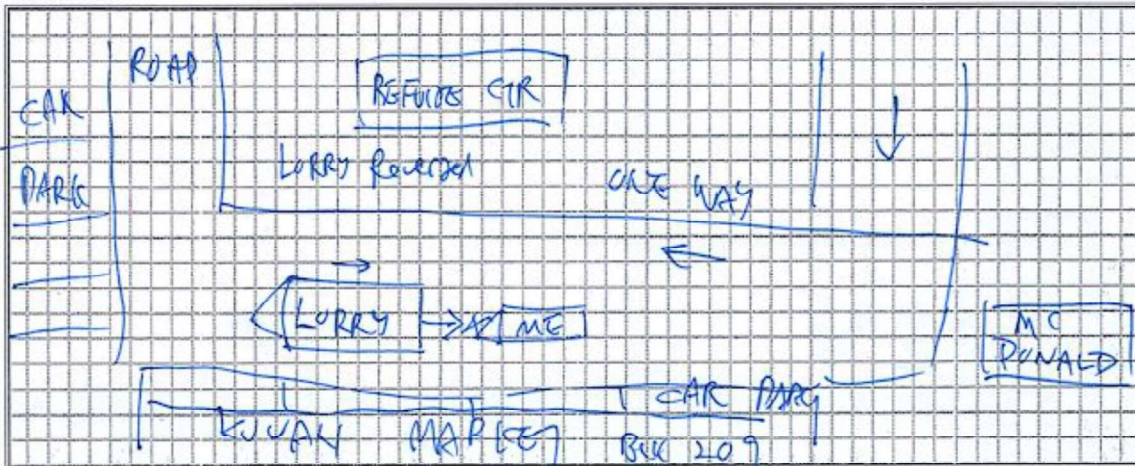 ROAD
CAR
PARK
REFUSE CTR
LORRY Reversed
ONE WAY
LORRY
ME
MC
DONALD
CAR PARK
MARKET
BLK 209